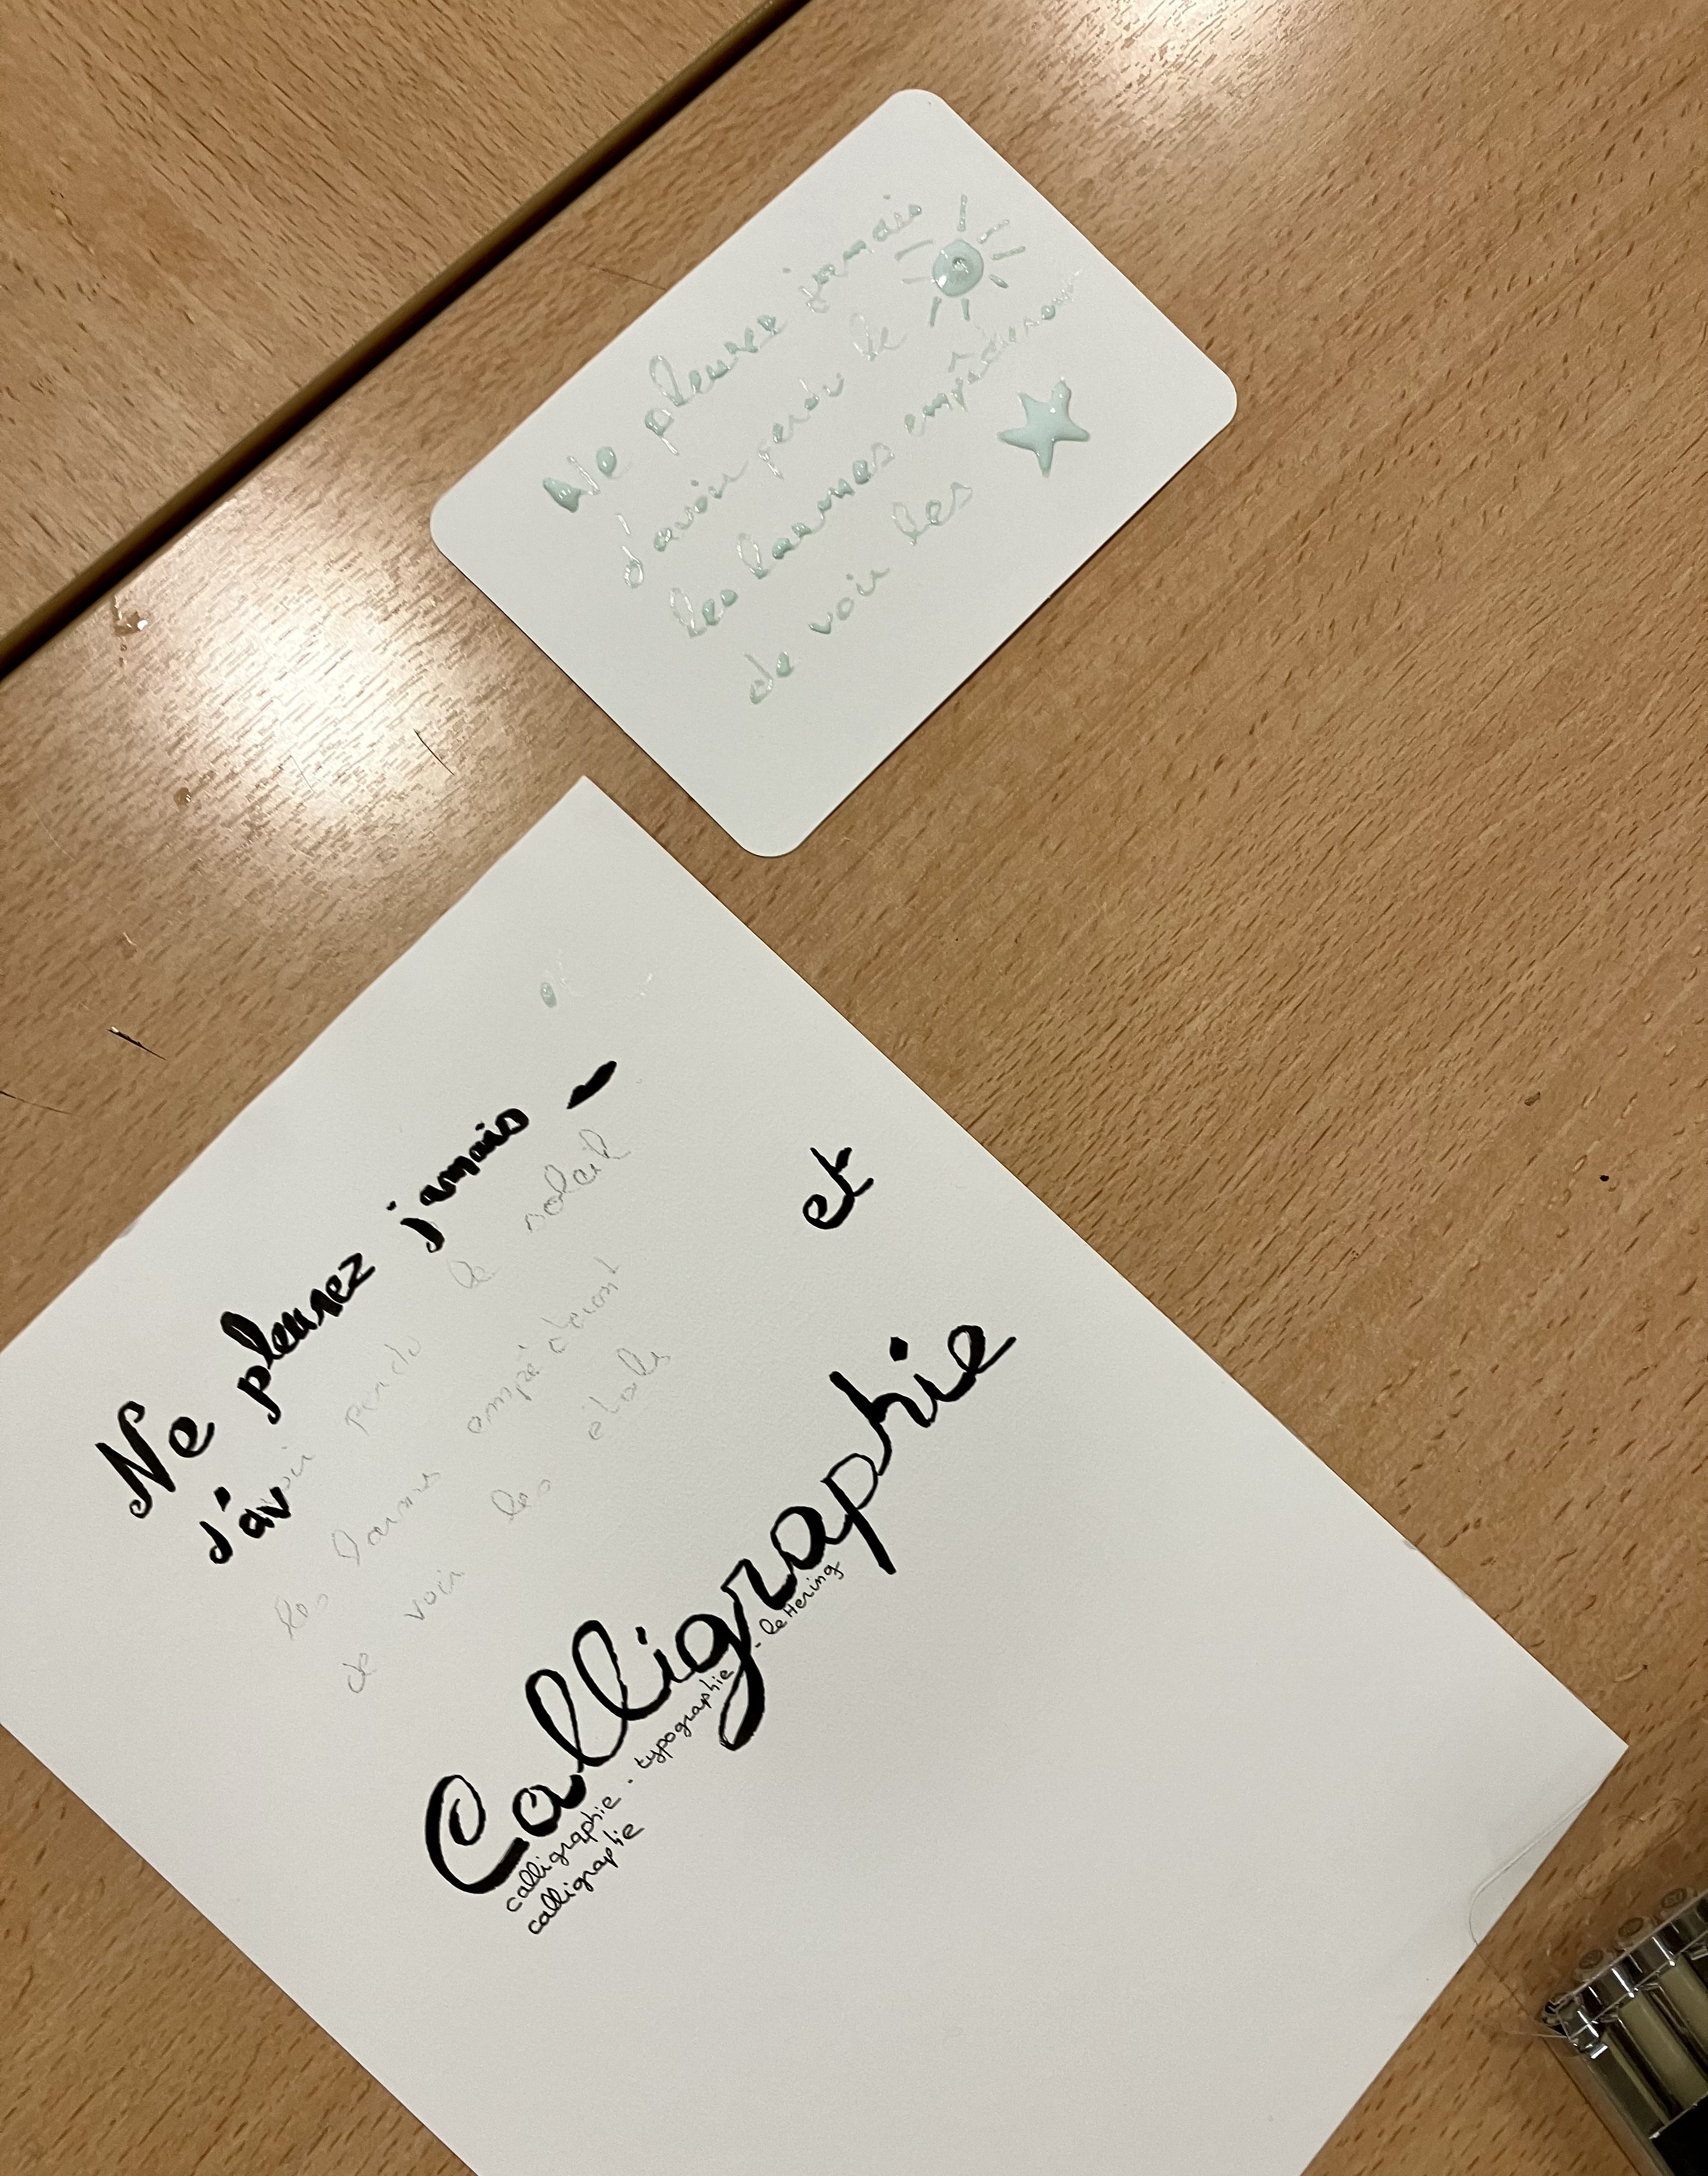 Ne pleurez jamais
d'avoir perdu le
les larmes empêcheront
de voir les
Ne pleurez jamais
d'avoir perdu le soleil
les larmes empêcheront
de voir les étoiles
et
Calligraphie
calligraphie - typographie - lettering
calligraphie